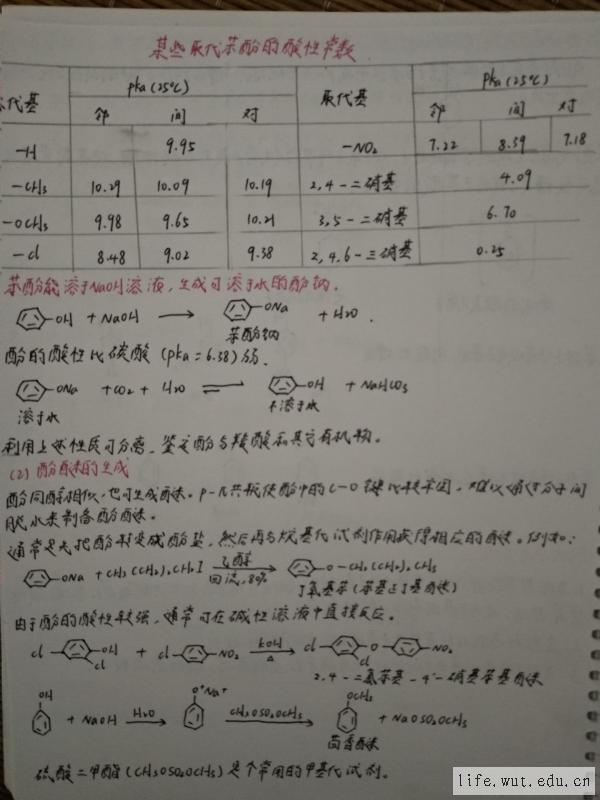 某些取代苯酚的酸性常数
代基 pka(25℃) 取代基 pka(25℃)
邻 间 对 邻 间 对
-H 9.95 -NO₂ 7.22 8.39 7.18
-CH₃ 10.29 10.09 10.19 2,4-二硝基 4.09
-OCH₃ 9.98 9.65 10.21 3,5-二硝基 6.70
-Cl 8.48 9.02 9.38 2,4,6-三硝基 0.25
苯酚能溶于NaOH溶液，生成可溶于水的酚钠。
-OH + NaOH → -ONa + H₂O.
苯酚钠
酚的酸性比碳酸(pka=6.38)弱.
-ONa + CO₂ + H₂O ⇌ -OH + NaHCO₃
溶于水 不溶于水
利用上述性质可分离、鉴定酚与羧酸和其它有机物。
(2) 酚醚的生成
酚同醇相似，也可生成醚。p-π共轭使酚中的C-O键比较牢固，难以通过分子间
脱水来制备酚醚。
通常是先把酚转变成酚盐，然后再与烷基化试剂作用获得相应的醚。例如：
-ONa + CH₃(CH₂)₂CH₂I 乙醇 回流,80% → -O-CH₂(CH₂)₂CH₃
丁氧基苯(苯基正丁基醚)
由于酚的酸性较强，通常可在碱性溶液中直接反应。
Cl- -OH Cl + Cl- -NO₂ KOH △ → Cl- -O- -NO₂ Cl
2,4-二氯苯基-4'-硝基苯基醚
OH + NaOH H₂O → O⁻Na⁺ CH₃OSO₂OCH₃ → OCH₃ + NaOSO₂OCH₃
茴香醚
硫酸二甲酯(CH₃OSO₂OCH₃)是个常用的甲基化试剂。
life.wut.edu.cn